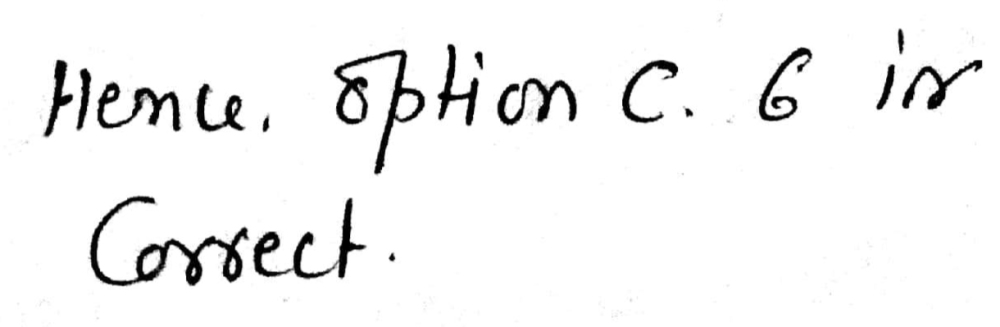 Hence, option C. 6 is
Correct.